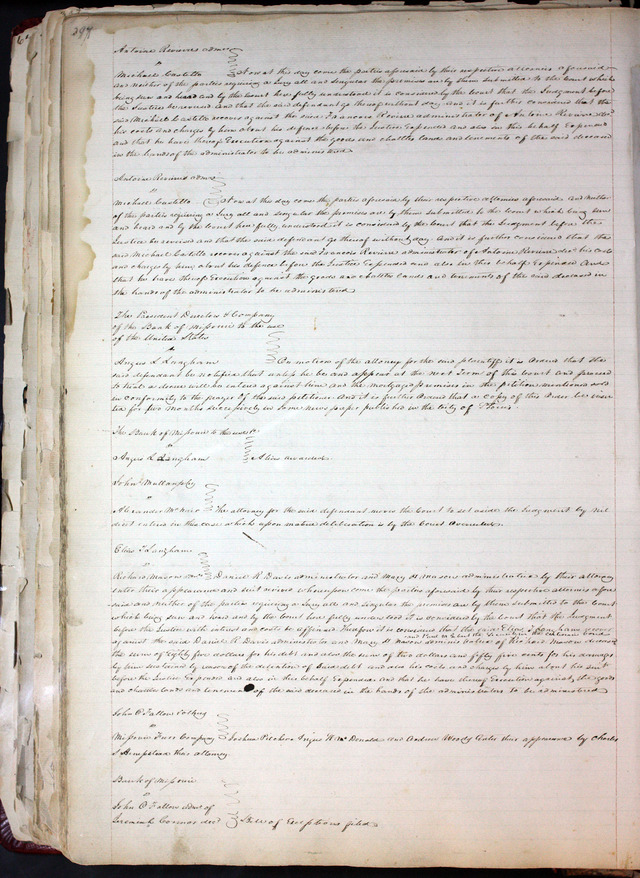 294
Antoine Reviere admr
vs
Michael Castello Now at this day come the parties aforesaid by their respective attornies aforesaid
and neither of the parties requiring a Jury all and singular the premises are by them submitted to the Court which
being seen and heard and by the Court here fully understood it is considered by the Court that the Judgment before
the Justice be reversed and that the said defendant go thereof without day and it is further considered that the
said Michael Castello recover against the said Francois Reviere administrator of Antoine Reviere decd
his costs and charges by him about his defence before the Justice Expended and also in this behalf Expended
and that he have thereof Execution against the goods and chattles lands and tenements of the said deceased
in the hands of the administrator to be administered
Antoine Reviere admr
vs
Michael Castello Now at this day come the parties aforesaid by their respective attornies aforesaid and neither
of the parties requiring a Jury all and singular the premises are by them submitted to the Court which being seen
and heard and by the Court here fully understood it is considered by the Court that the Judgment before the
Justice be reversed and that the said defendant go thereof without day. And it is further considered that the
said Michael Castello recover against the said Francois Reviere administrator of Antoine Reviere decd his costs
and charges by him about his defence before the Justice Expended and also in this behalf Expended and
that he have thereof Execution against the goods and chattles lands and tenements of the said deceased in
the hands of the administrator to be administered
The President Directors & Company
of the Bank of Missouri to the use
of the United States
vs
Angus L Langham On motion of the attorney for the said plaintiff it is ordered that the
said defendant be notified that unless he be and appear at the next Term of this Court and proceed
to trial a decree will be entered against him and the mortgaged premises in the petition mentioned sold
in conformity to the prayer of the said petitioner. And it is further ordered that a copy of this order be inser
ted for two months successively in some news paper published in the City of St Louis.
The Bank of Missouri to the use &c
vs
Angus L Langham Alias awarded
John Mullanphy
vs
Alexander McNair The attorney for the said defendant moves the Court to set aside the Judgment by Nil
dicit entered in this case which upon mature deliberation is by the Court overruled.
Elias T Langham
vs
Richard Masons admrs Daniel R. Davis administrator and Mary A Mason administratrix by their attorney
enter their appearance and suit revived whereupon come the parties aforesaid by their respective attornies afore
said and neither of the parties requiring a Jury all and singular the premises are by them submitted to the Court
which being seen and heard and by the Court here fully understood it is considered by the Court that the Judgment
before the Justice with interest and costs be affirmed. Therefore it is considered that the said Elias T Langham recover
against the said Daniel R. Davis administrator and Mary A Mason administratrix of Richard Mason deceased
the sum of Eighty five dollars for his debt and also the sum of two dollars and fifty five cents for his damages
by him sustained by reason of the detention of said debt and also his costs and charges by him about his suit
before the Justice Expended and also in this behalf Expended and that he have thereof Execution against the goods
and chattles lands and tenements of the said deceased in the hands of the administrators to be administered
John O Fallon
vs
Missouri Fur Company Joshua Pilcher Angus W. McDonald and Andrew Woods Enter their appearance by Charles
S Hempstead their attorney
Bank of Missouri
vs
John O Fallon admr of
Jeremiah Connor decd Bill of Exceptions filed